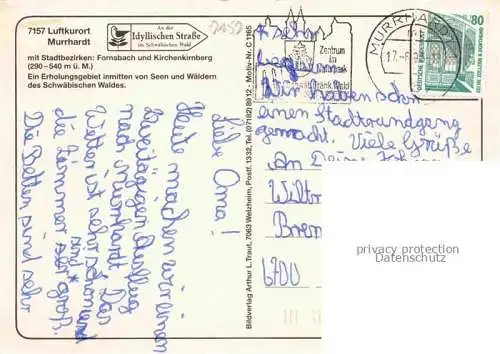 7157 Luftkurort
Murrhardt
An der
Idyllischen Straße
im Schwäbischen Wald
mit Stadtbezirken: Fornsbach und Kirchenkirnberg
(290–540 m ü. M.)
Ein Erholungsgebiet inmitten von Seen und Wäldern
des Schwäbischen Waldes.
Liebe Oma!
Heute machen wir einen
zweitägigen Ausflug
nach Murrhardt. Das
Wetter ist sehr schön und
die Zimmer sind sehr groß.
Die Betten sind sehr
Bildverlag Arthur L. Traut, 7063 Welzheim, Postf. 1332, Tel. (07182) 8912 - Molto-Nr. C 1165
* sehr
Wir haben schon
einen Stadtrundgang
gemacht. Viele Grüße
An Deine
Wiltr
Brem
6700
MURRHARDT
Zentrum
im
Naturpark
Schwäb. Fränk. Wald
80
DEUTSCHE BUNDESPOST
privacy protection
Datenschutz